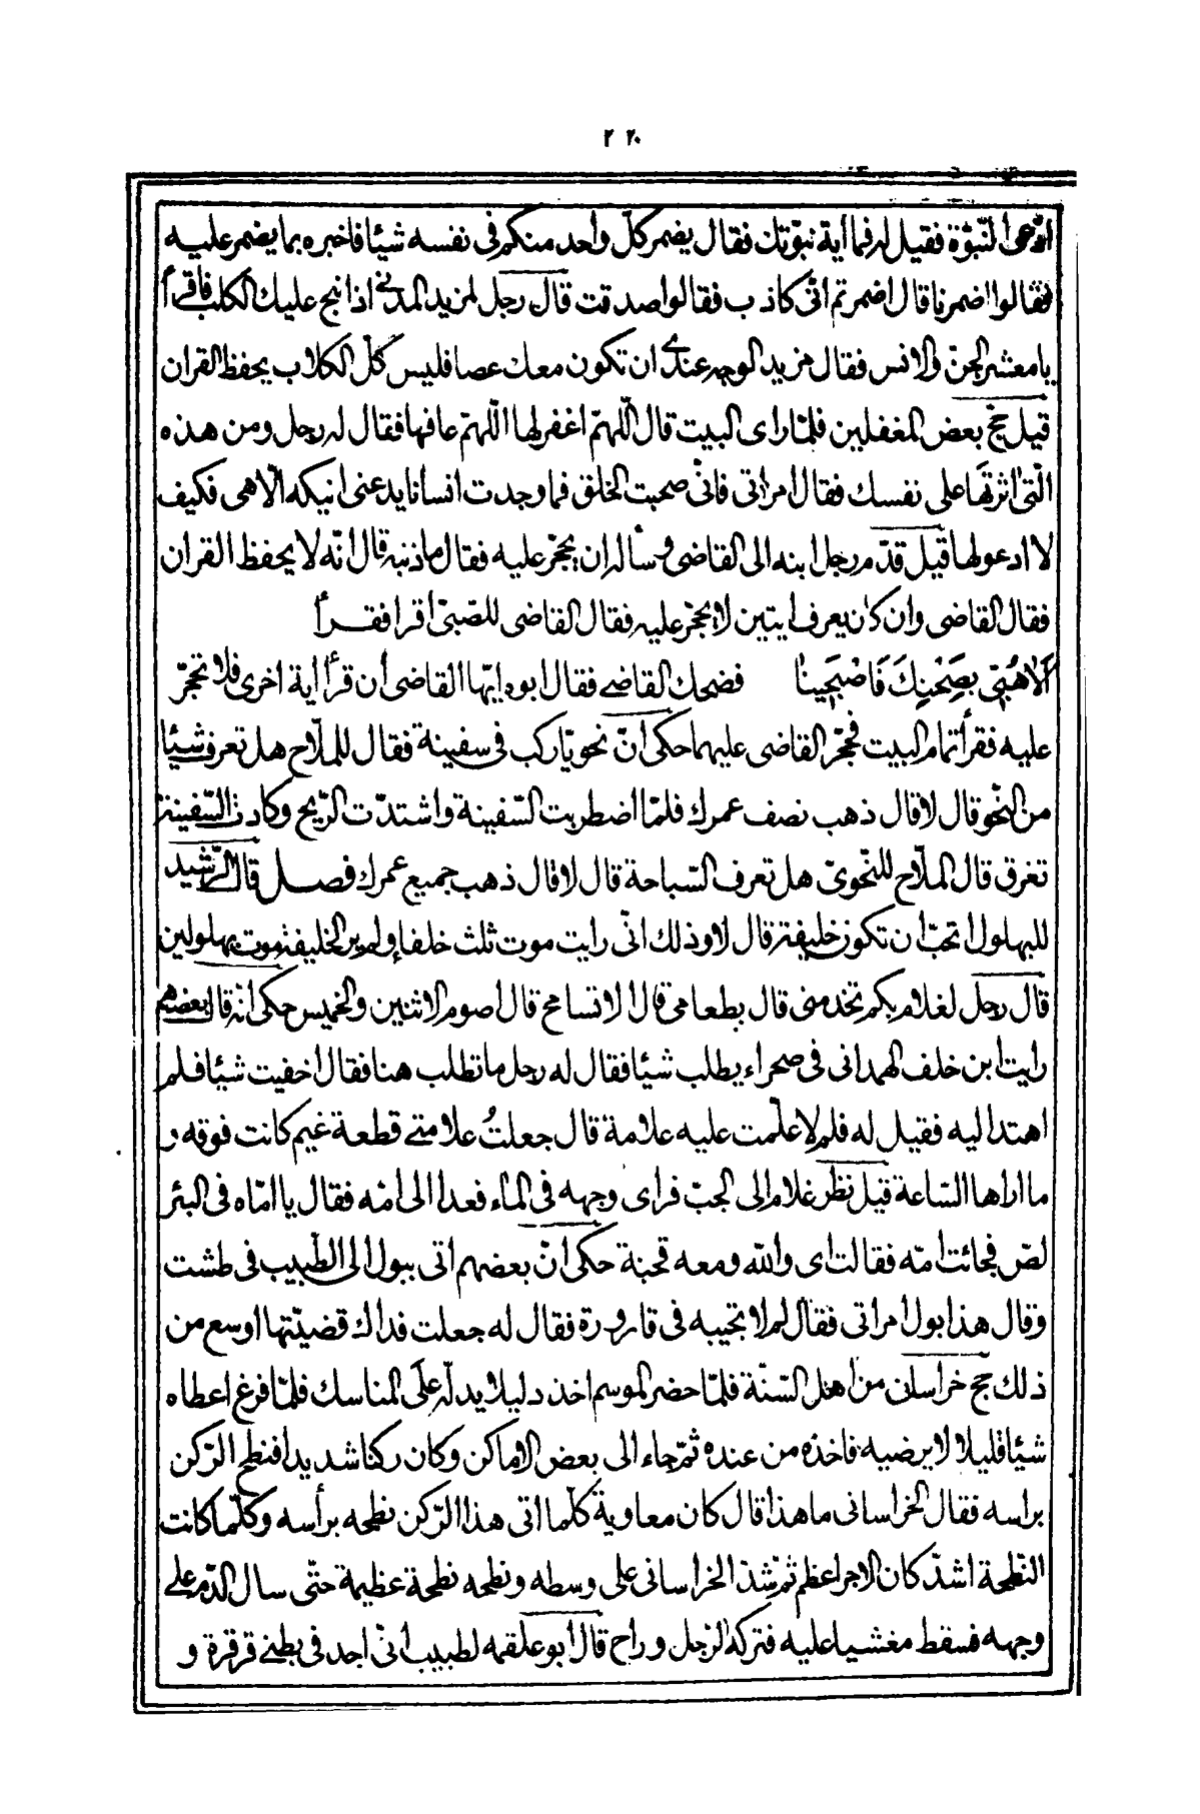 ٢٢٠
ادّعى النّبوّة فقيل له فما اية نبوّتك فقال يضمر كلّ واحد منكم فى نفسه شيئا فاخبره بما يضمر عليه
فقالوا اضمرنا قال اضمرتم انّى كاذب فقالوا صدقت قال رجل لمزيد المدنى اذا نبح عليك الكلب فاقرأ
يا معشر الجنّ والانس فقال مزيد الوجه عندى ان تكون معك عصا فليس كلّ الكلاب يحفظ القران
قيل حجّ بعض المغفلين فلمّا راى البيت قال اللّهمّ اغفر لها اللّهمّ عافها فقال له رجل ومن هذه
الّتى اثرتها على نفسك فقال امراتى فانّى صحبت الخلق فما وجدت انسانا يدعنى انيكه الّا هى فكيف
لا ادعو لها قيل قدّم رجل ابنه الى القاضى وسأله ان يحجّر عليه فقال ما ذنبه قال انّه لا يحفظ القران
فقال القاضى وان كان يعرف ايتين لا يحجّر عليه فقال القاضى للصّبىّ اقرا فقرأ
اَلَا هُبّى بِصَحْنِكَ فَاصْبَحِينَا فضحك القاضى فقال ابوه ايّها القاضى ان قرأ اية اخرى فلا تحجّر
عليه فقرأ تمام البيت فحجّر القاضى عليهما حكى انّ نحويّا ركب فى سفينة فقال للملّاح هل تعرف شيئا
من النّحو قال لا قال ذهب نصف عمرك فلمّا اضطربت السّفينة واشتدّت الرّيح وكادت السّفينة
تغرق قال الملّاح للنّحوىّ هل تعرف السّباحة قال لا قال ذهب جميع عمرك فصل قال الرّشيد
للبهلول اتحبّ ان تكون خليفة قال لا وذلك انّى رايت موت ثلث خلفاء ولم ير الخليفة موت بهلولين
قال رجل لغلام بكم تخدمنى قال بطعامى قال لا تسامح قال اصوم الاثنين والخميس حكى انّه قال بعضهم
رايت ابن خلف الهمدانى فى صحراء يطلب شيئا فقال له رجل ما تطلب هنا فقال اخفيت شيئا فلم
اهتد اليه فقيل له فلم لا علّمت عليه علامة قال جعلتُ علامتى قطعة غيم كانت فوقه و
ما اراها السّاعة قيل نظر غلام الى الجبّ فراى وجهه فى الماء فعدا الى امّه فقال يا امّاه فى البئر
لصّ فجائت امّه فقالت اى والله ومعه قحبة حكى انّ بعضهم اتى ببول الى الطّبيب فى طشت
وقال هذا بول امراتى فقال لم لا تجيبه فى قارورة فقال له جعلت فداك قضيّتها اوسع من
ذلك حج خراسانى من اهل السّنّة فلمّا حضر الموسم اخذ دليلا يدلّه على المناسك فلمّا فرغ اعطاه
شيئا قليلا لا يرضيه فاخذه من عنده ثمّ جاء الى بعض الاماكن وكان ركنا شديدا فنطح الرّكن
براسه فقال الخراسانى ما هذا قال كان معاوية كلّما اتى هذا الرّكن نطحه برأسه وكلّما كانت
النّطحة اشدّ كان الاجر اعظم ثمّ شدّ الخراسانى على وسطه ونطحه نطحة عظيمة حتّى سال الدّم على
وجهه فسقط مغشيا عليه فتركه الرّجل وراح قال أبو علقمه لطبيب انّى اجد فى بطنى قرقرة و